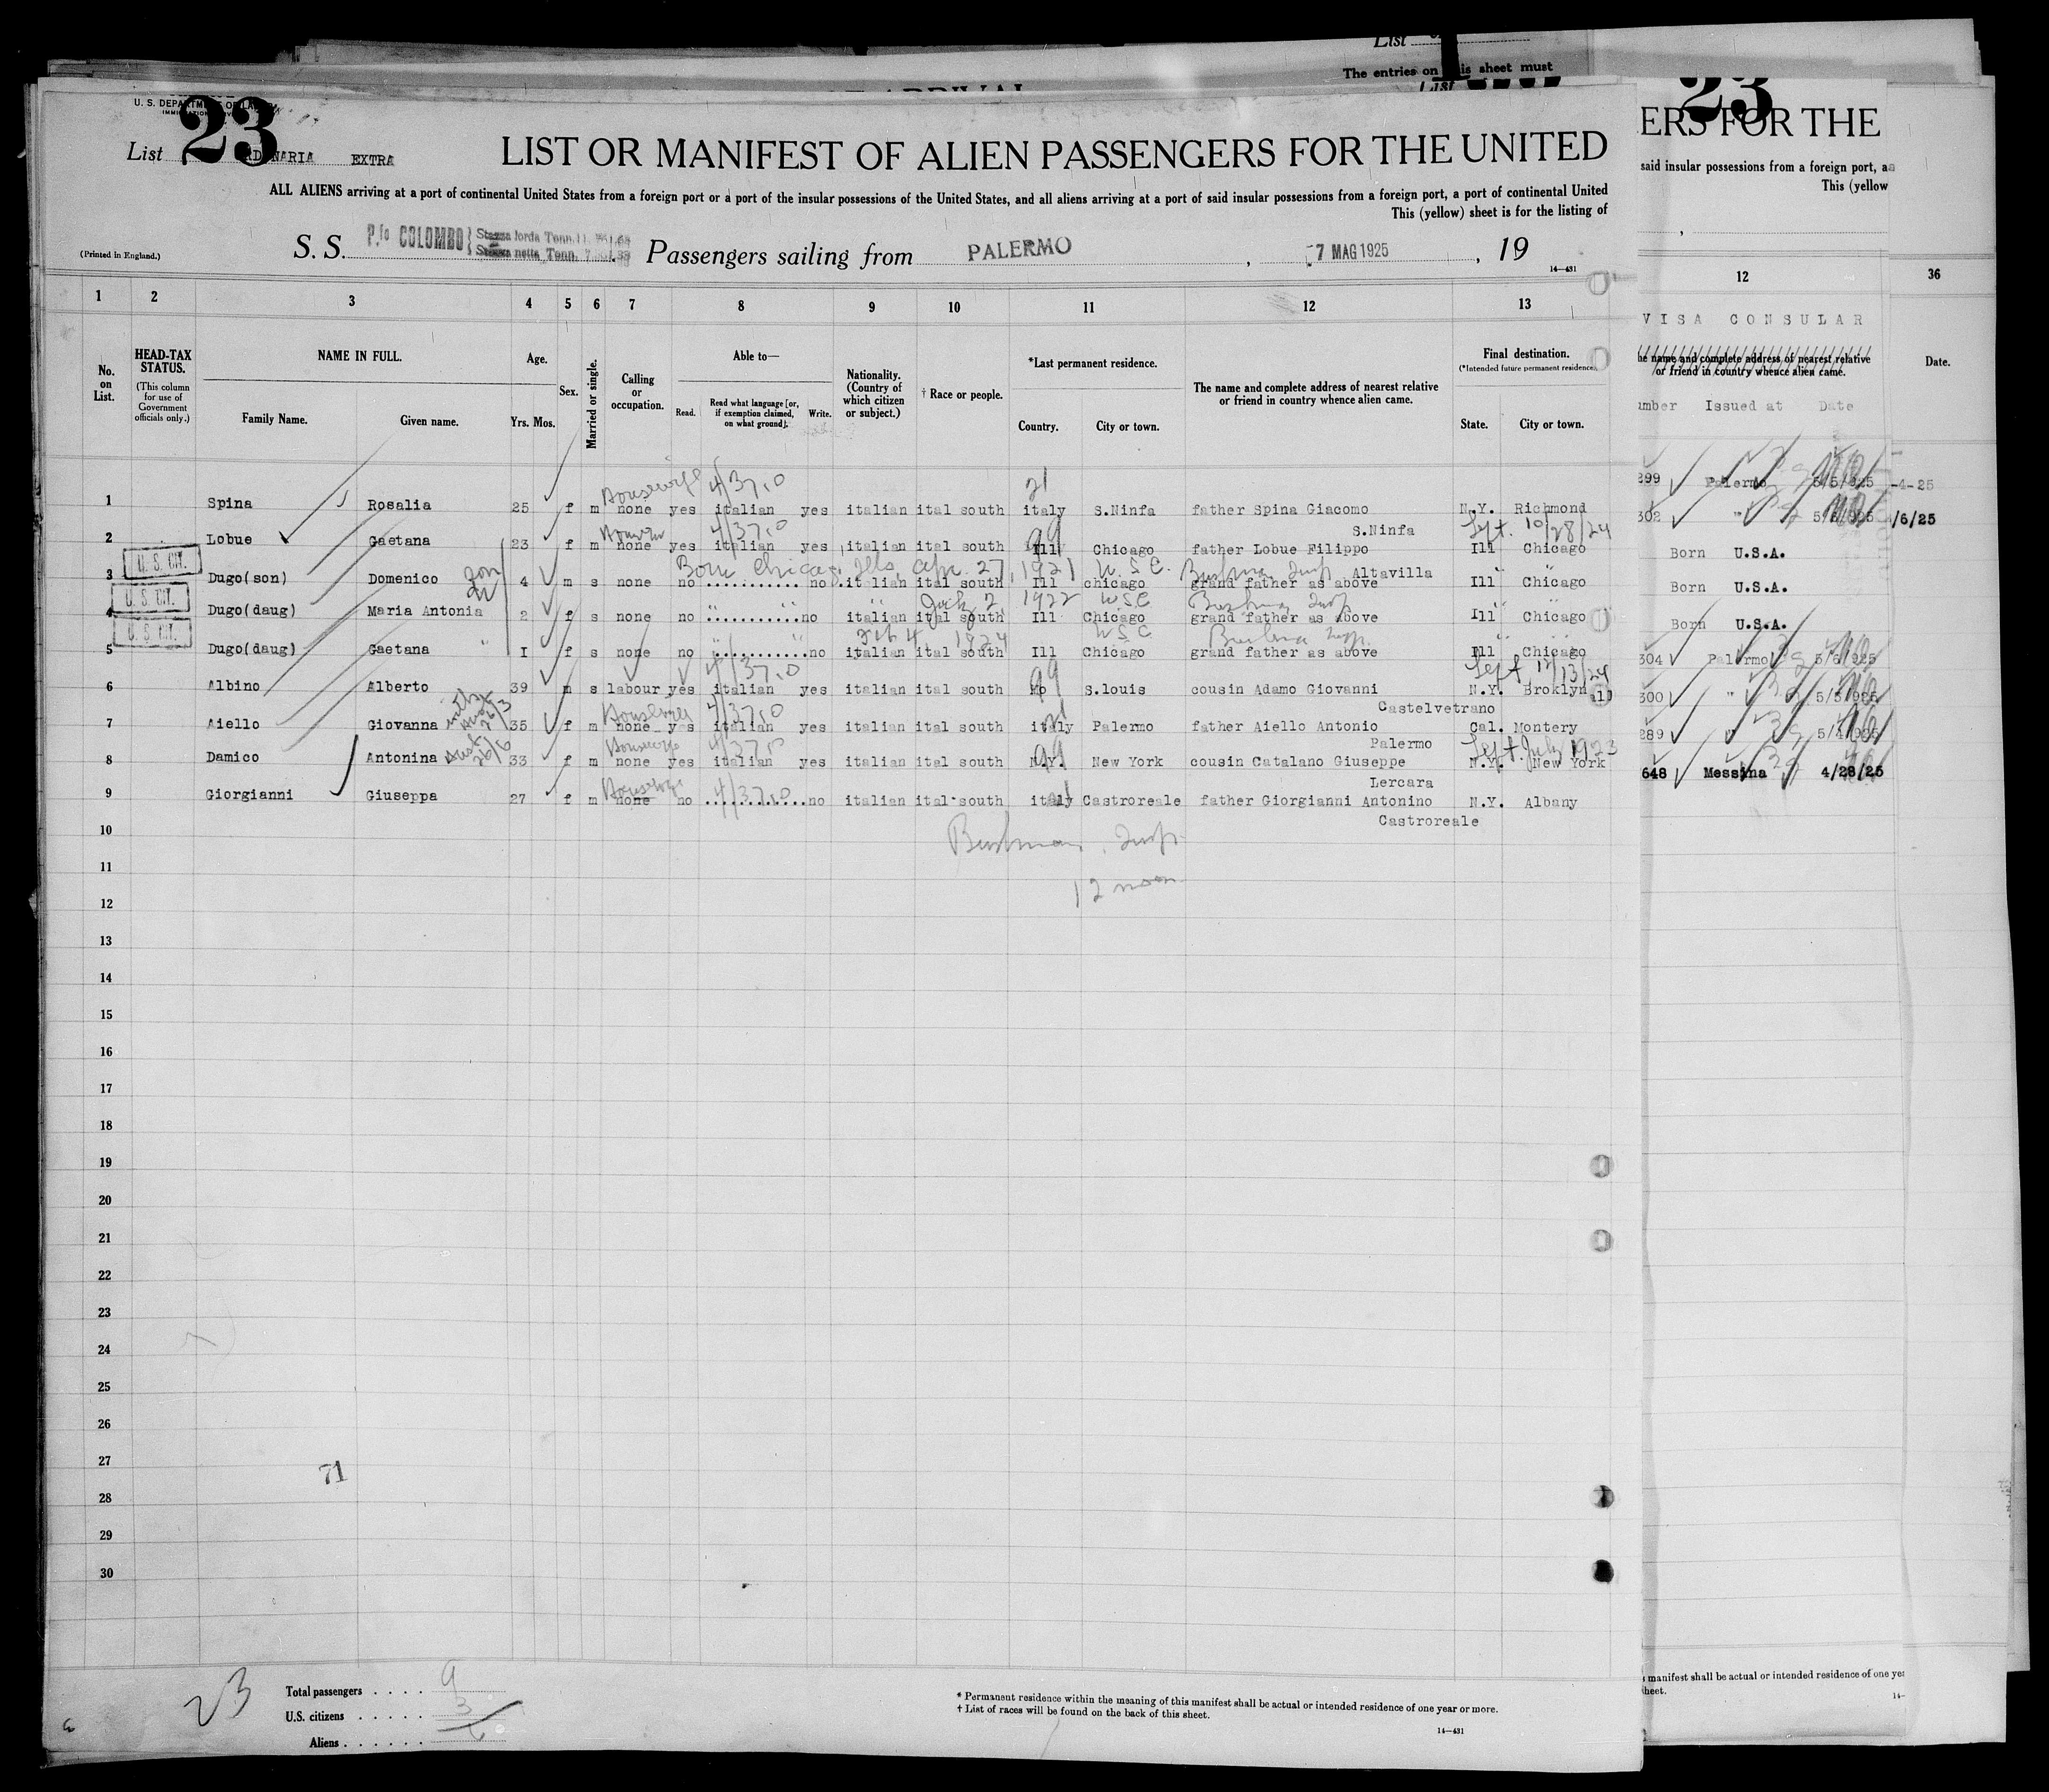 List
The entries on this sheet must
List
U. S. DEPARTMENT OF LABOR
23
List EXTRA
LIST OR MANIFEST OF ALIEN PASSENGERS FOR THE UNITED
ALL ALIENS arriving at a port of continental United States from a foreign port or a port of the insular possessions of the United States, and all aliens arriving at a port of said insular possessions from a foreign port, a port of continental United
This (yellow) sheet is for the listing of
(Printed in England.)
S. S. P.fo COLOMBO Passengers sailing from PALERMO , 7 MAG 1925 , 19
Stazza lorda Tonn.
Stazza netta Tonn.
14—431
1 2 3 4 5 6 7 8 9 10 11 12 13
No. on List.
HEAD-TAX STATUS.
(This column for use of Government officials only.)
NAME IN FULL.
Family Name. Given name.
Age.
Yrs. Mos.
Sex.
Married or single.
Calling or occupation.
Able to—
Read. Read what language [or, if exemption claimed, on what ground]. Write.
Nationality. (Country of which citizen or subject.)
† Race or people.
*Last permanent residence.
Country. City or town.
The name and complete address of nearest relative or friend in country whence alien came.
Final destination.
(*Intended future permanent residence)
State. City or town.
Housewife 4/37.0 21
1 Spina Rosalia 25 f m none yes italian yes italian ital south italy S.Ninfa father Spina Giacomo N.Y. Richmond
4/37.0 99 S.Ninfa Sept. 10/28/24
2 Lobue Gaetana 23 f m none yes italian yes italian ital south Ill Chicago father Lobue Filippo Ill Chicago
U. S. CIT. Born Chicago, Ills, Apr. 27, 1921 U.S.C. Bushman Insp Altavilla
3 Dugo(son) Domenico 4 m s none no no italian ital south Ill chicago grand father as above Ill Chicago
U. S. CIT. " " " July 2, 1922 U.S.C. Bushman Insp
4 Dugo(daug) Maria Antonia 2 f s none no no italian ital south Ill Chicago grand father as above Ill Chicago
U. S. CIT. " " Feb 4 1924 U.S.C. Bushman Insp.
5 Dugo(daug) Gaetana I f s none no no italian ital south Ill Chicago grand father as above Ill Chicago
4/37.0 99 Sept. 12/13/24
6 Albino Alberto 39 m s labour yes italian yes italian ital south Mo S.louis cousin Adamo Giovanni N.Y. Broklyn
Castelvetrano
Housewife 4/37.0 21
7 Aiello Giovanna 35 f m none yes italian yes italian ital south italy Palermo father Aiello Antonio Cal. Montery
Housewife 4/37.0 99 Palermo Sept. July 1923
8 Damico Antonina 33 f m none yes italian yes italian ital south N.Y. New York cousin Catalano Giuseppe N.Y. New York
Housewife Lercara
9 Giorgianni Giuseppa 27 f m none no 4/37.0 no italian ital south italy Castroreale father Giorgianni Antonino N.Y. Albany
Castroreale
10
Bushman, Insp.
11
12 noon
12
13
14
15
16
17
18
19
20
21
22
23
24
25
26
27
71
28
29
30
23
Total passengers . . . . 9
U.S. citizens . . . . . 3
Aliens . . . . . . 6
* Permanent residence within the meaning of this manifest shall be actual or intended residence of one year or more.
† List of races will be found on the back of this sheet.
14—431
23
ERS FOR THE
said insular possessions from a foreign port, a
This (yellow
12 36
VISA CONSULAR
he name and complete address of nearest relative
or friend in country whence alien came.
Date.
umber Issued at Date
299 Palermo 5/5/925 -4-25
302 " 5/6/925 /6/25
Born U.S.A.
Born U.S.A.
Born U.S.A.
304 Palermo 5/6/925
300 " 5/5/925
289 " 5/4/925
648 Messina 4/28/25
manifest shall be actual or intended residence of one yea
heet.
14—